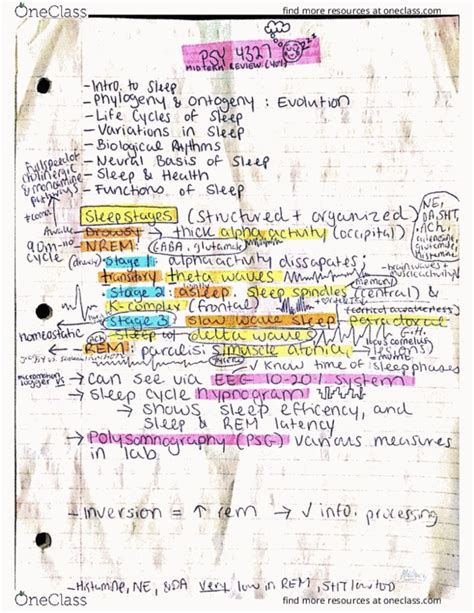 OneClass
find more resources at oneclass.com
PSY 4327
MIDTERM REVIEW
- Intro. to Sleep
- Phylogeny & Ontogeny : Evolution
- Life Cycles of Sleep
- Variations in Sleep
- Biological Rhythms
- Neural Basis of Sleep
- Sleep & Health
- Functions of Sleep
cholinergic
& monoamine
pathways
Sleep stages (structured + organized)
Awake Drowsy → thick alpha activity (occipital)
NE,
DA, 5HT,
ACh,
glutamate,
histamine
90m-110
cycle
NREM: (GABA, glutamate)
(drowsy) Stage 1: alpha activity dissapates;
transitory theta waves
brain waves +
muscle activity
(memory)
Stage 2: asleep sleep spindles (central) &
K-complex (frontal)
homeostatic
Stage 3: slow wave sleep paradoxal
sleep w/ delta waves
ACh
REM: paralisi / muscle atonia,
√ know time of sleep phases
→ can see via EEG 10-20 system
→ sleep cycle hypnogram
→ shows sleep efficency, and
sleep & REM latency
→ Polysomnography (PSG) various measures
in lab
- Inversion = ↑ rem → √ info. processing
- Histamine, NE, & DA very low in REM, 5HT
OneClass
find more resources at oneclass.com